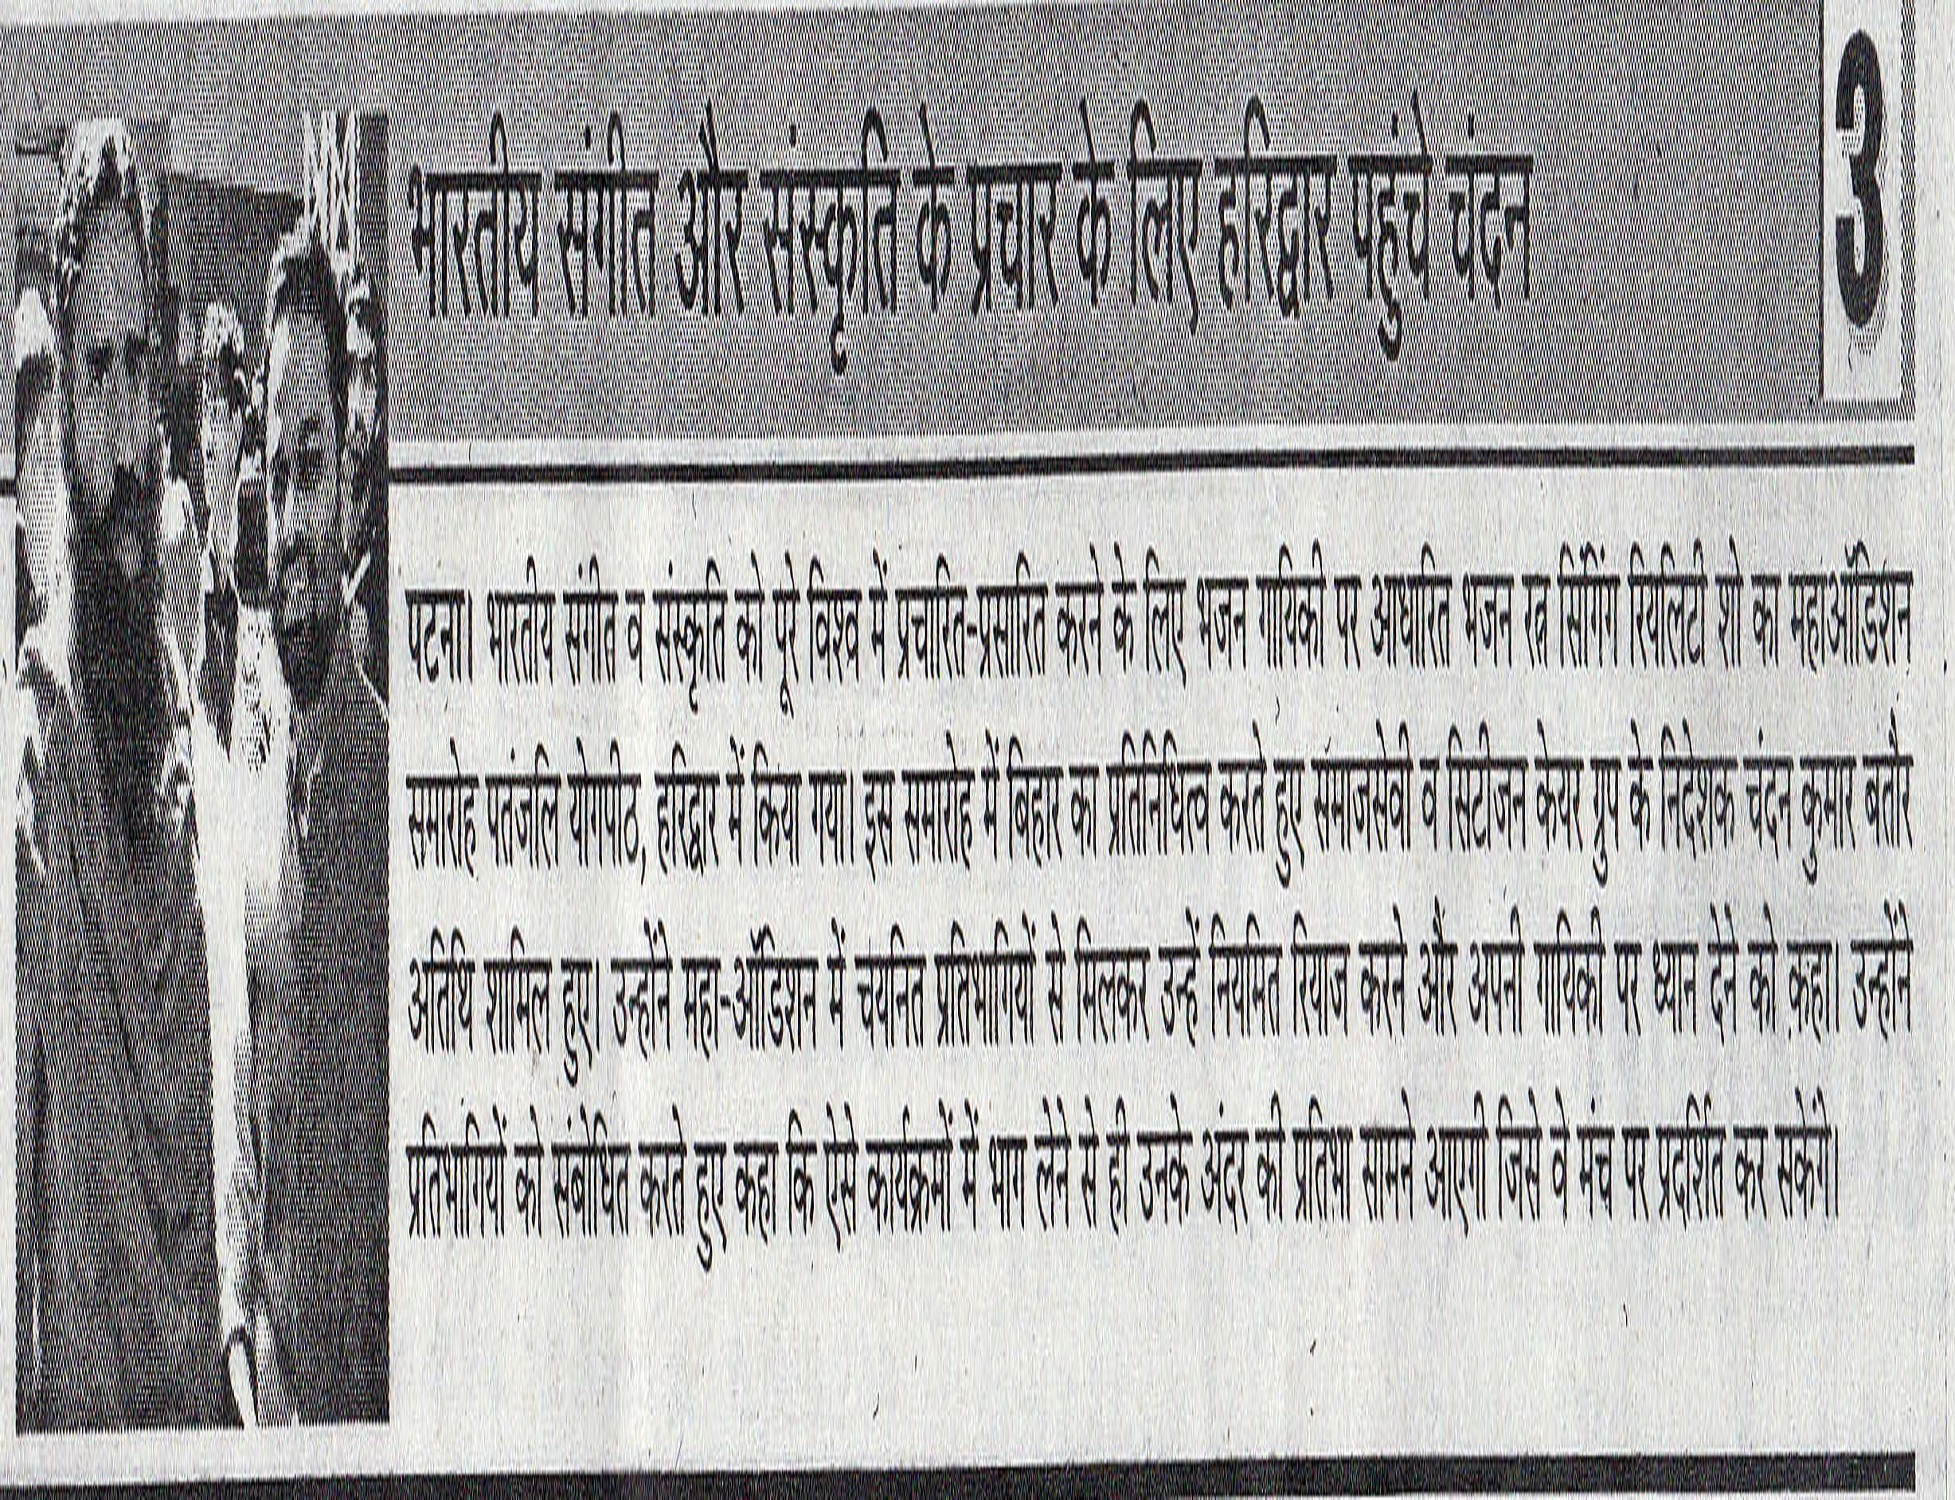 भारतीय संगीत और संस्कृति के प्रचार के लिए हरिद्वार पहुंचे चंदन
3
पटना। भारतीय संगीत व संस्कृति को पूरे विश्व में प्रचारित-प्रसारित करने के लिए भजन गायिकी पर आधारित भजन रत्न सिंगिंग रियलिटी शो का महाऑडिशन
समारोह पतंजलि योगपीठ, हरिद्वार में किया गया। इस समारोह में बिहार का प्रतिनिधित्व करते हुए समाजसेवी व सिटीजन केयर ग्रुप के निदेशक चंदन कुमार बतौर
अतिथि शामिल हुए। उन्होंने महा-ऑडिशन में चयनित प्रतिभागियों से मिलकर उन्हें नियमित रियाज करने और अपनी गायिकी पर ध्यान देने को कहा। उन्होंने
प्रतिभागियों को संबोधित करते हुए कहा कि ऐसे कार्यक्रमों में भाग लेने से ही उनके अंदर की प्रतिभा सामने आएगी जिसे वे मंच पर प्रदर्शित कर सकेंगे।